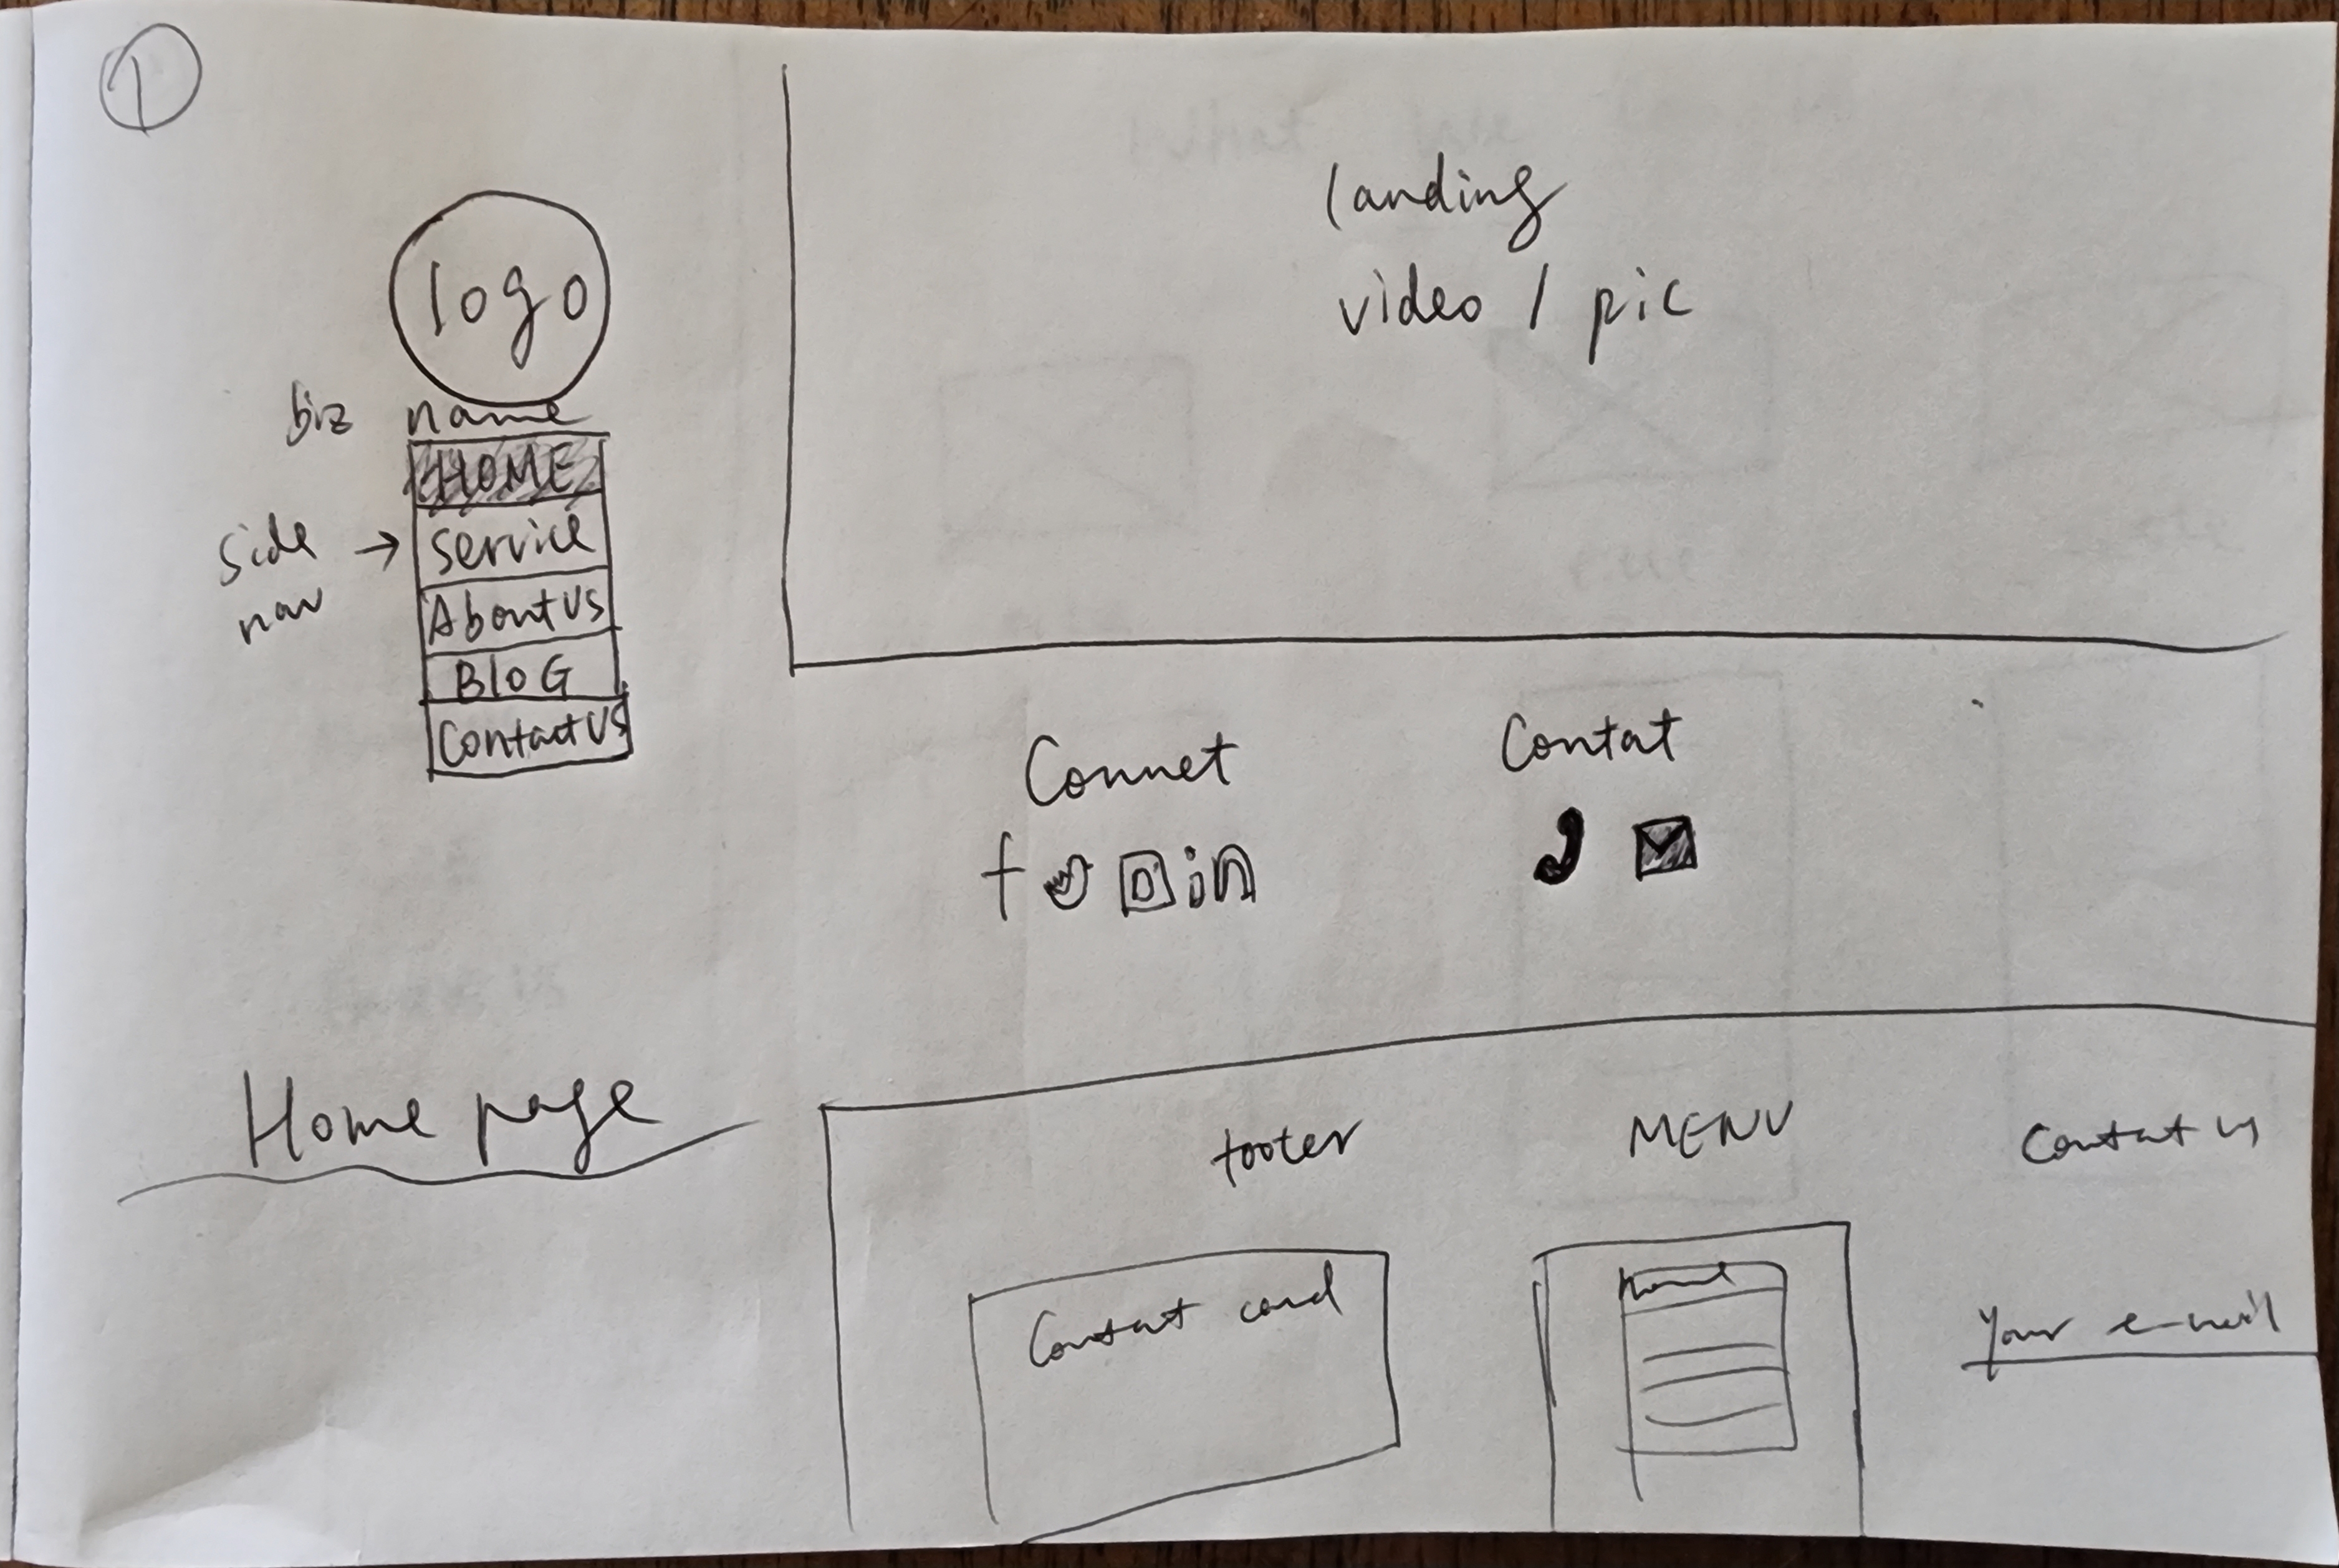 1
logo
biz name
HOME
Service
About Us
BloG
Contact Us
side
nav
landing
video / pic
Connet
f in
Contat
Home page
footer
MENU
Contat us
Contat card
Home
Your e-mail